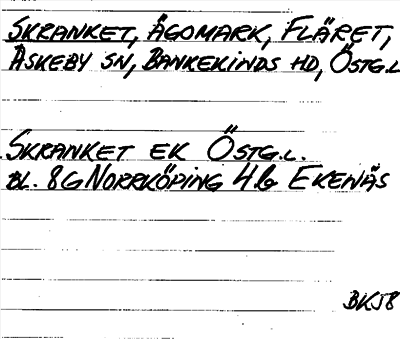 SKRANKET, ÄGOMARK, FLÄRET,
ÅSKEBY SN, BANKEKINDS HD, ÖSTG.L
SKRANKET EK ÖSTG.L.
BL. 8G NORRKÖPING 4b EKENÄS
BKJ8